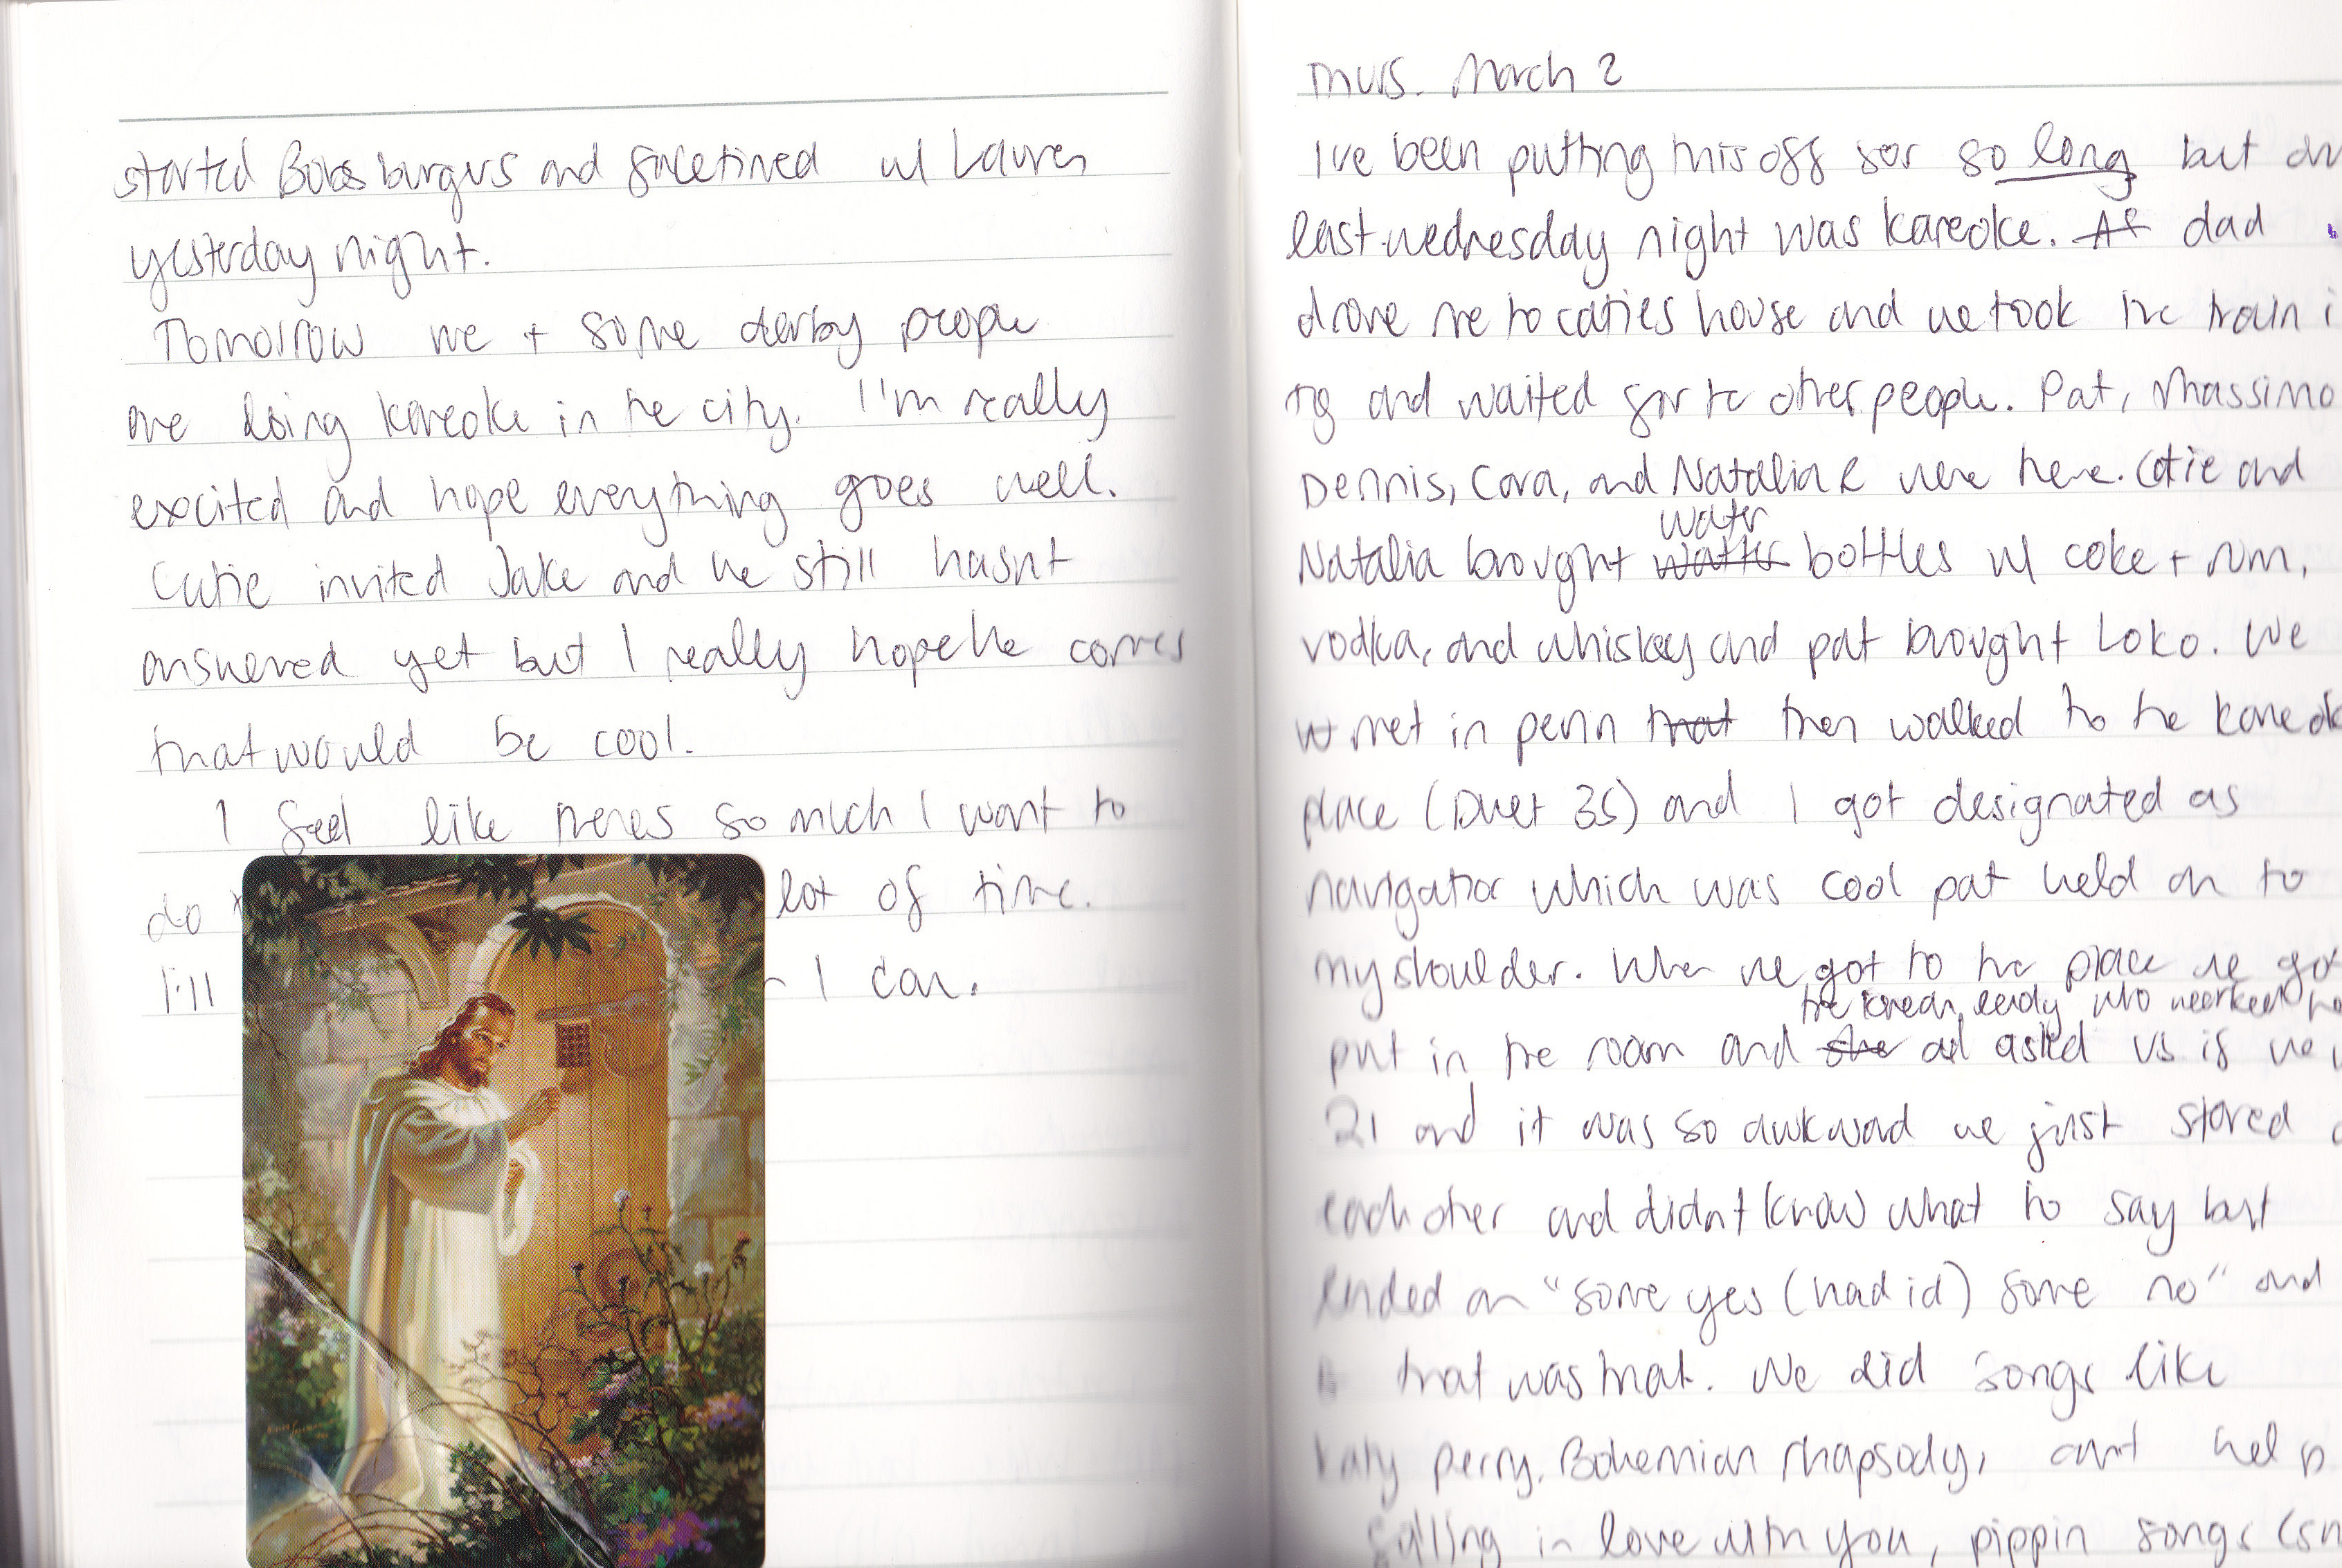 started Bobs burgers and facetimed w/ Lauren
yesterday night.
Tomorrow me + some derby people
are doing kareoke in the city. I'm really
excited and hope everything goes well.
Catie invited Jake and he still hasnt
answered yet but I really hope he comes
that would be cool.
I feel like theres so much I want to
do lot of time.
I'll I can.
Thurs. March 2
Ive been putting this off for so long but
last wednesday night was kareoke. At dad
drove me to caties house and we took the train
and waited for te other people. Pat, Massimo
Dennis, Cora, and Natalia R were here. Catie and
water
Natalia brought watter bottles w/ coke + rum,
vodka, and whiskey and pat brought Loko. We
w met in penn that then walked to the
place (Duet 35) and I got designated as
navigator which was cool pat held on to
my shoulder. When we got to the place we got
the korean lady who worked
put in the room and she asked us if we
21 and it was so awkward we just stared
each other and didnt know what to say but
ended on "some yes (had id) some no" and
that was that. We did songs like
katy perry, Bohemian rhapsody, cant help
falling in love with you, pippin songs